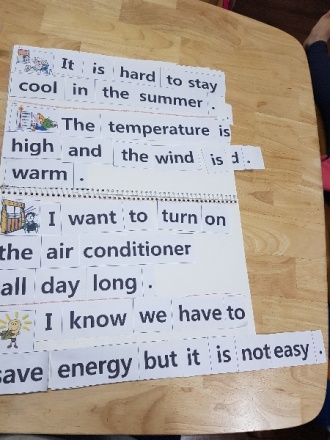 It is hard to stay
cool in the summer .
The temperature is
high and the wind is d .
warm .
I want to turn on
the air conditioner
all day long .
I know we have to
save energy but it is not easy .